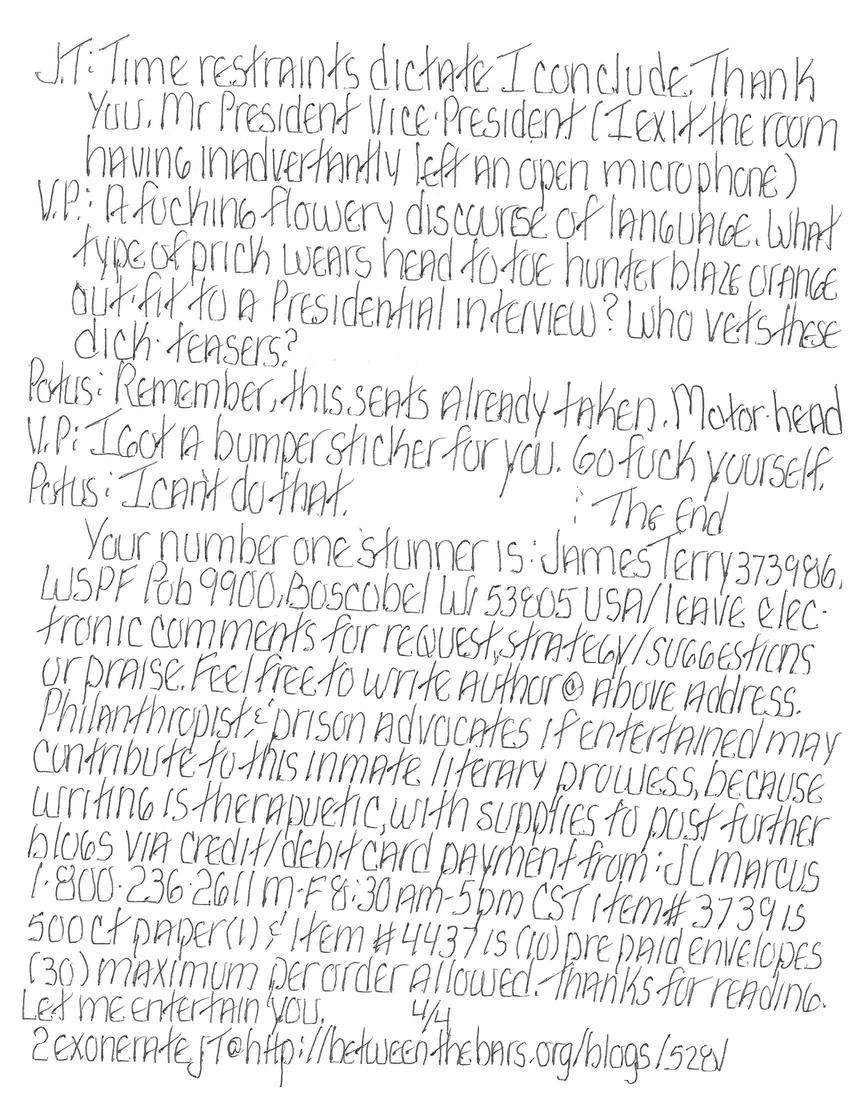 J.T.: Time restraints dictate I conclude. Thank
You. Mr President Vice-President (I exit the room
having inadvertantly left an open microphone)
V.P.: A fucking flowery discourse of language. What
type of prick wears head to toe hunter blaze orange
out-fit to a Presidential interview? Who vets these
dick-teasers?
Potus: Remember, this seats already taken. Motor-head
V.P.: I got a bumpersticker for you. Go fuck yourself.
Potus: I can't do that. : The End
Your number one stunner is: James Terry 373986,
WSPF Pob 9900, Boscobel Wi 53805 USA/leave elec-
tronic comments for request, strategy/suggestions
or praise. Feel free to write author @ above address.
Philanthropist, & prison advocates if entertained may
contribute to this inmate literary prowess, because
writing is therapuetic, with supplies to post further
blogs via credit/debit card payment from: JL Marcus
1-800-236-2611 M-F 8:30 am-5pm CST item# 3739 is
500 ct paper (1) & item #4437 is (10) pre paid envelopes
(30) maximum per order allowed. Thanks for reading.
Let me entertain You. 4/4
2exonerateJT@http://betweenthebars.org/blogs/528/